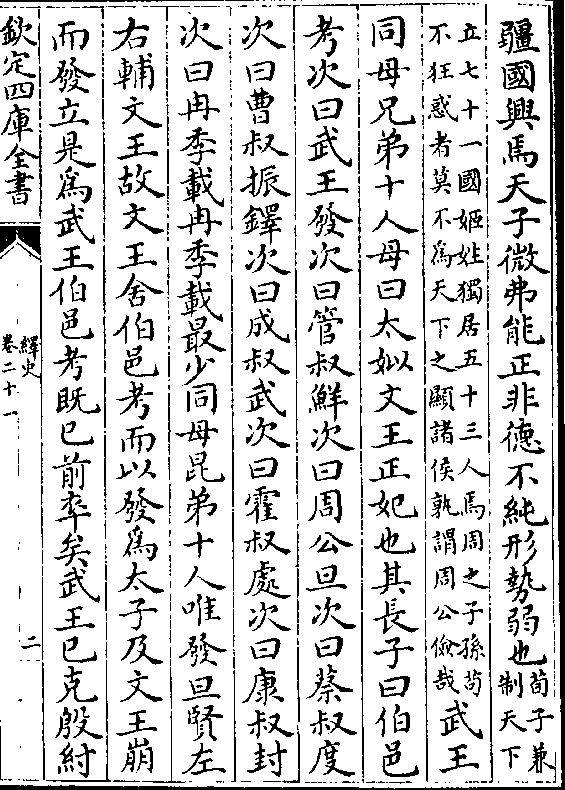 疆國興焉天子微弗能正非德不純形勢弱也荀子兼
制天下
立七十一國姬姓獨居五十三人焉周之子孫苟
不狂惑者莫不爲天下之顯諸侯孰謂周公儉哉武王
同母兄弟十人母曰太姒文王正妃也其長子曰伯邑
考次曰武王發次曰管叔鮮次曰周公旦次曰蔡叔度
次曰曹叔振鐸次曰成叔武次曰霍叔處次曰康叔封
次曰冉季載冉季載最少同母昆弟十人唯發旦賢左
右輔文王故文王舍伯邑考而以發爲太子及文王崩
而發立是爲武王伯邑考既已前卒矣武王已克殷紂
欽定四庫全書
繹史
卷二十一
二